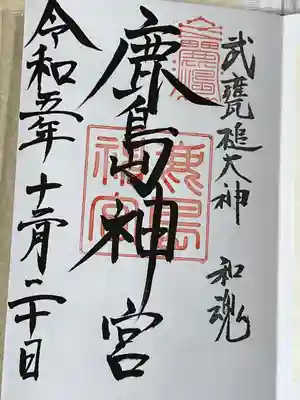 武甕槌大神 和魂
鹿島神宮
鹿島神宮
令和五年 十二月二十日